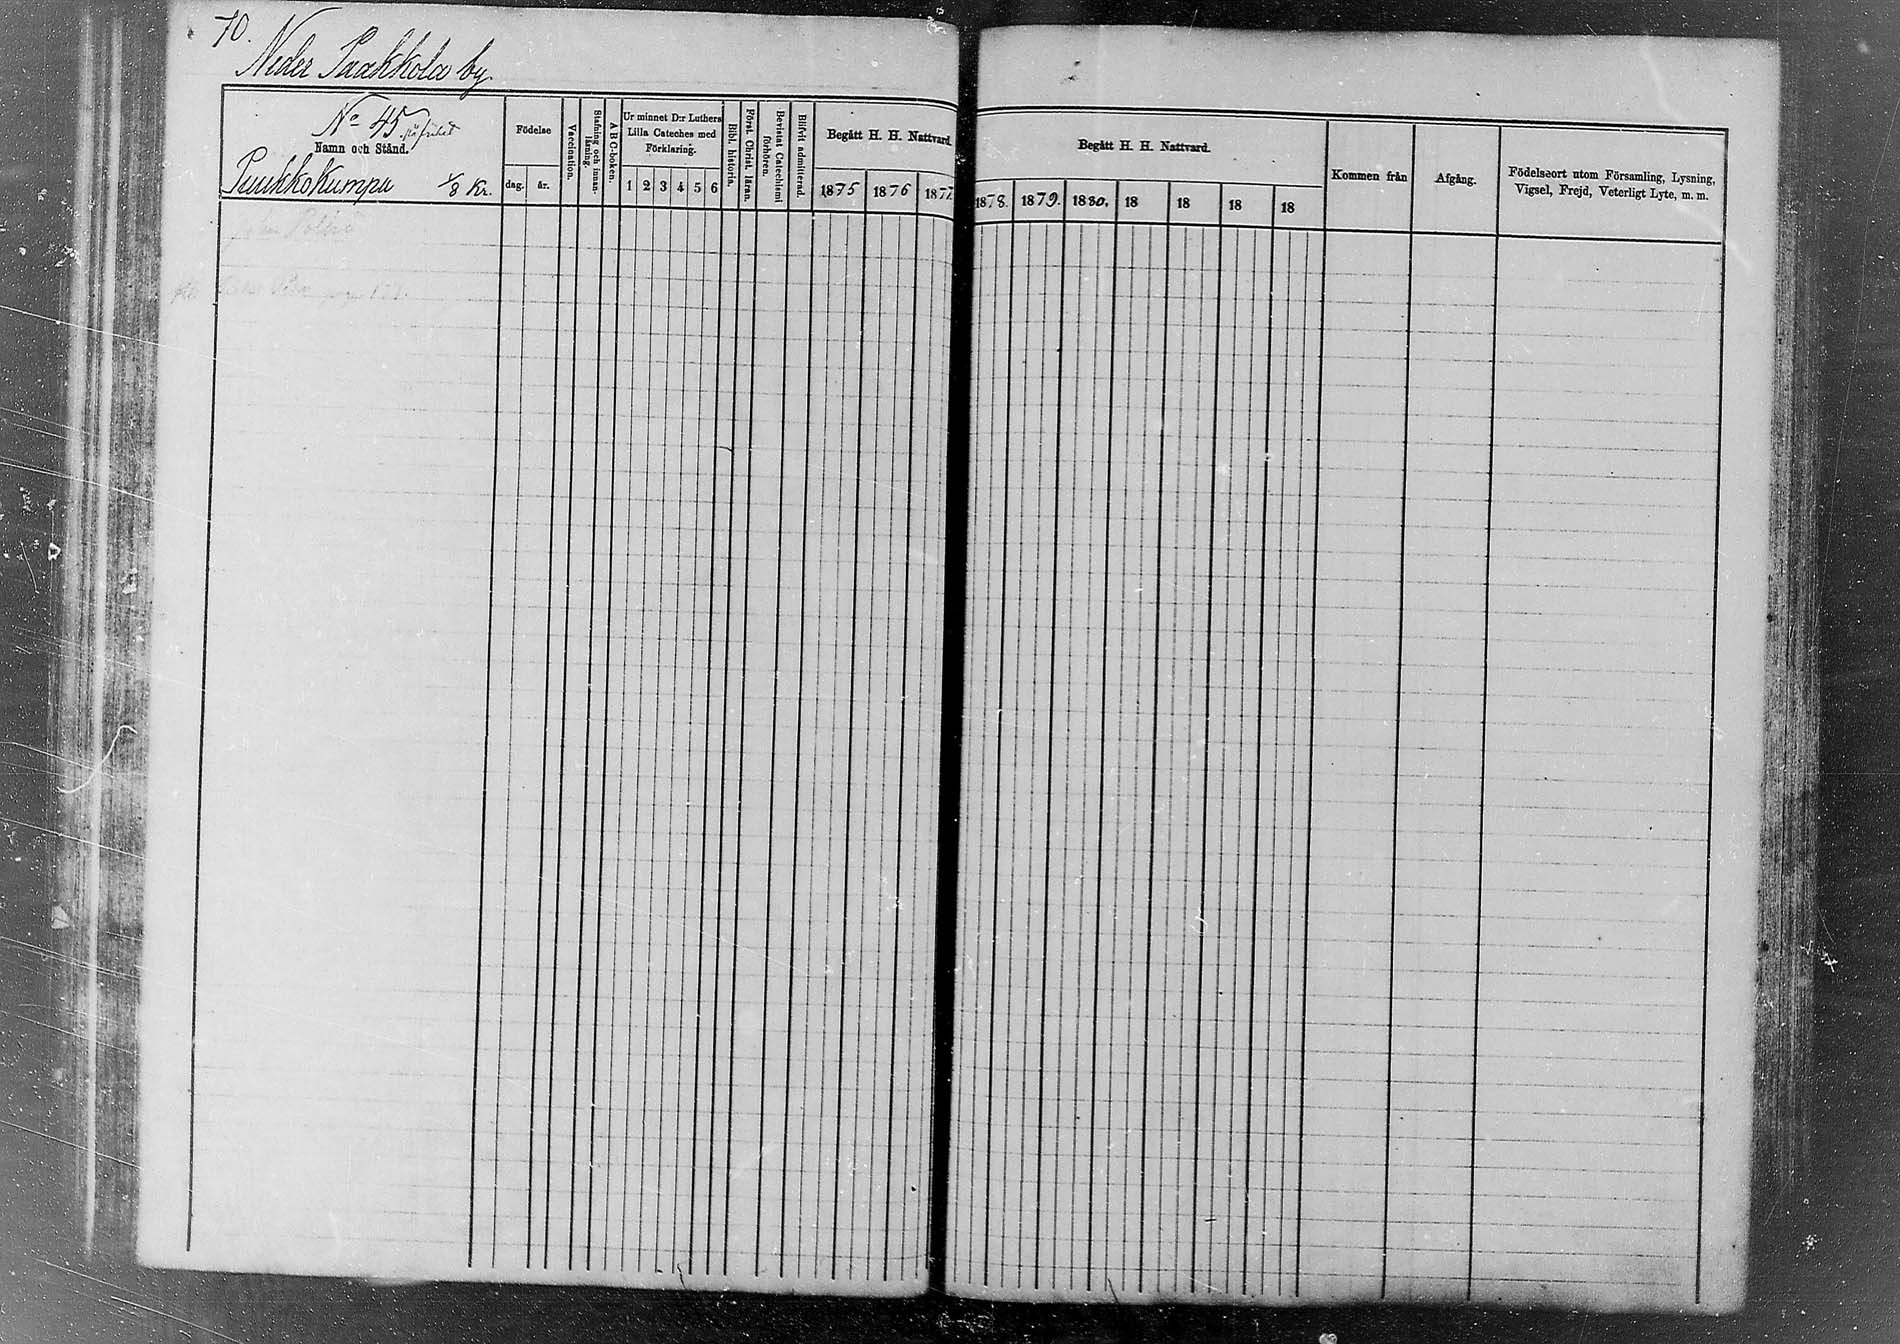 70.
Neder Paakkola by
No 45 på frihet
Namn och Stånd.
Puukkokumpu 1/8 Kr.
Födelse
dag. år.
Vaccination.
Stafning och innan-
läsning.
A B C-boken.
Ur minnet D:r Luthers
Lilla Cateches med
Förklaring.
1 2 3 4 5 6
Bibl. historia.
Först. Christ. läran.
Bevistat Catechismi
förhören.
Blifvit admitterad.
Begått H. H. Nattvard.
1875 1876 1877.
Begått H. H. Nattvard.
1878. 1879. 1880. 18 18 18 18
Kommen från
Afgång.
Födelseort utom Församling, Lysning,
Vigsel, Frejd, Veterligt Lyte, m. m.